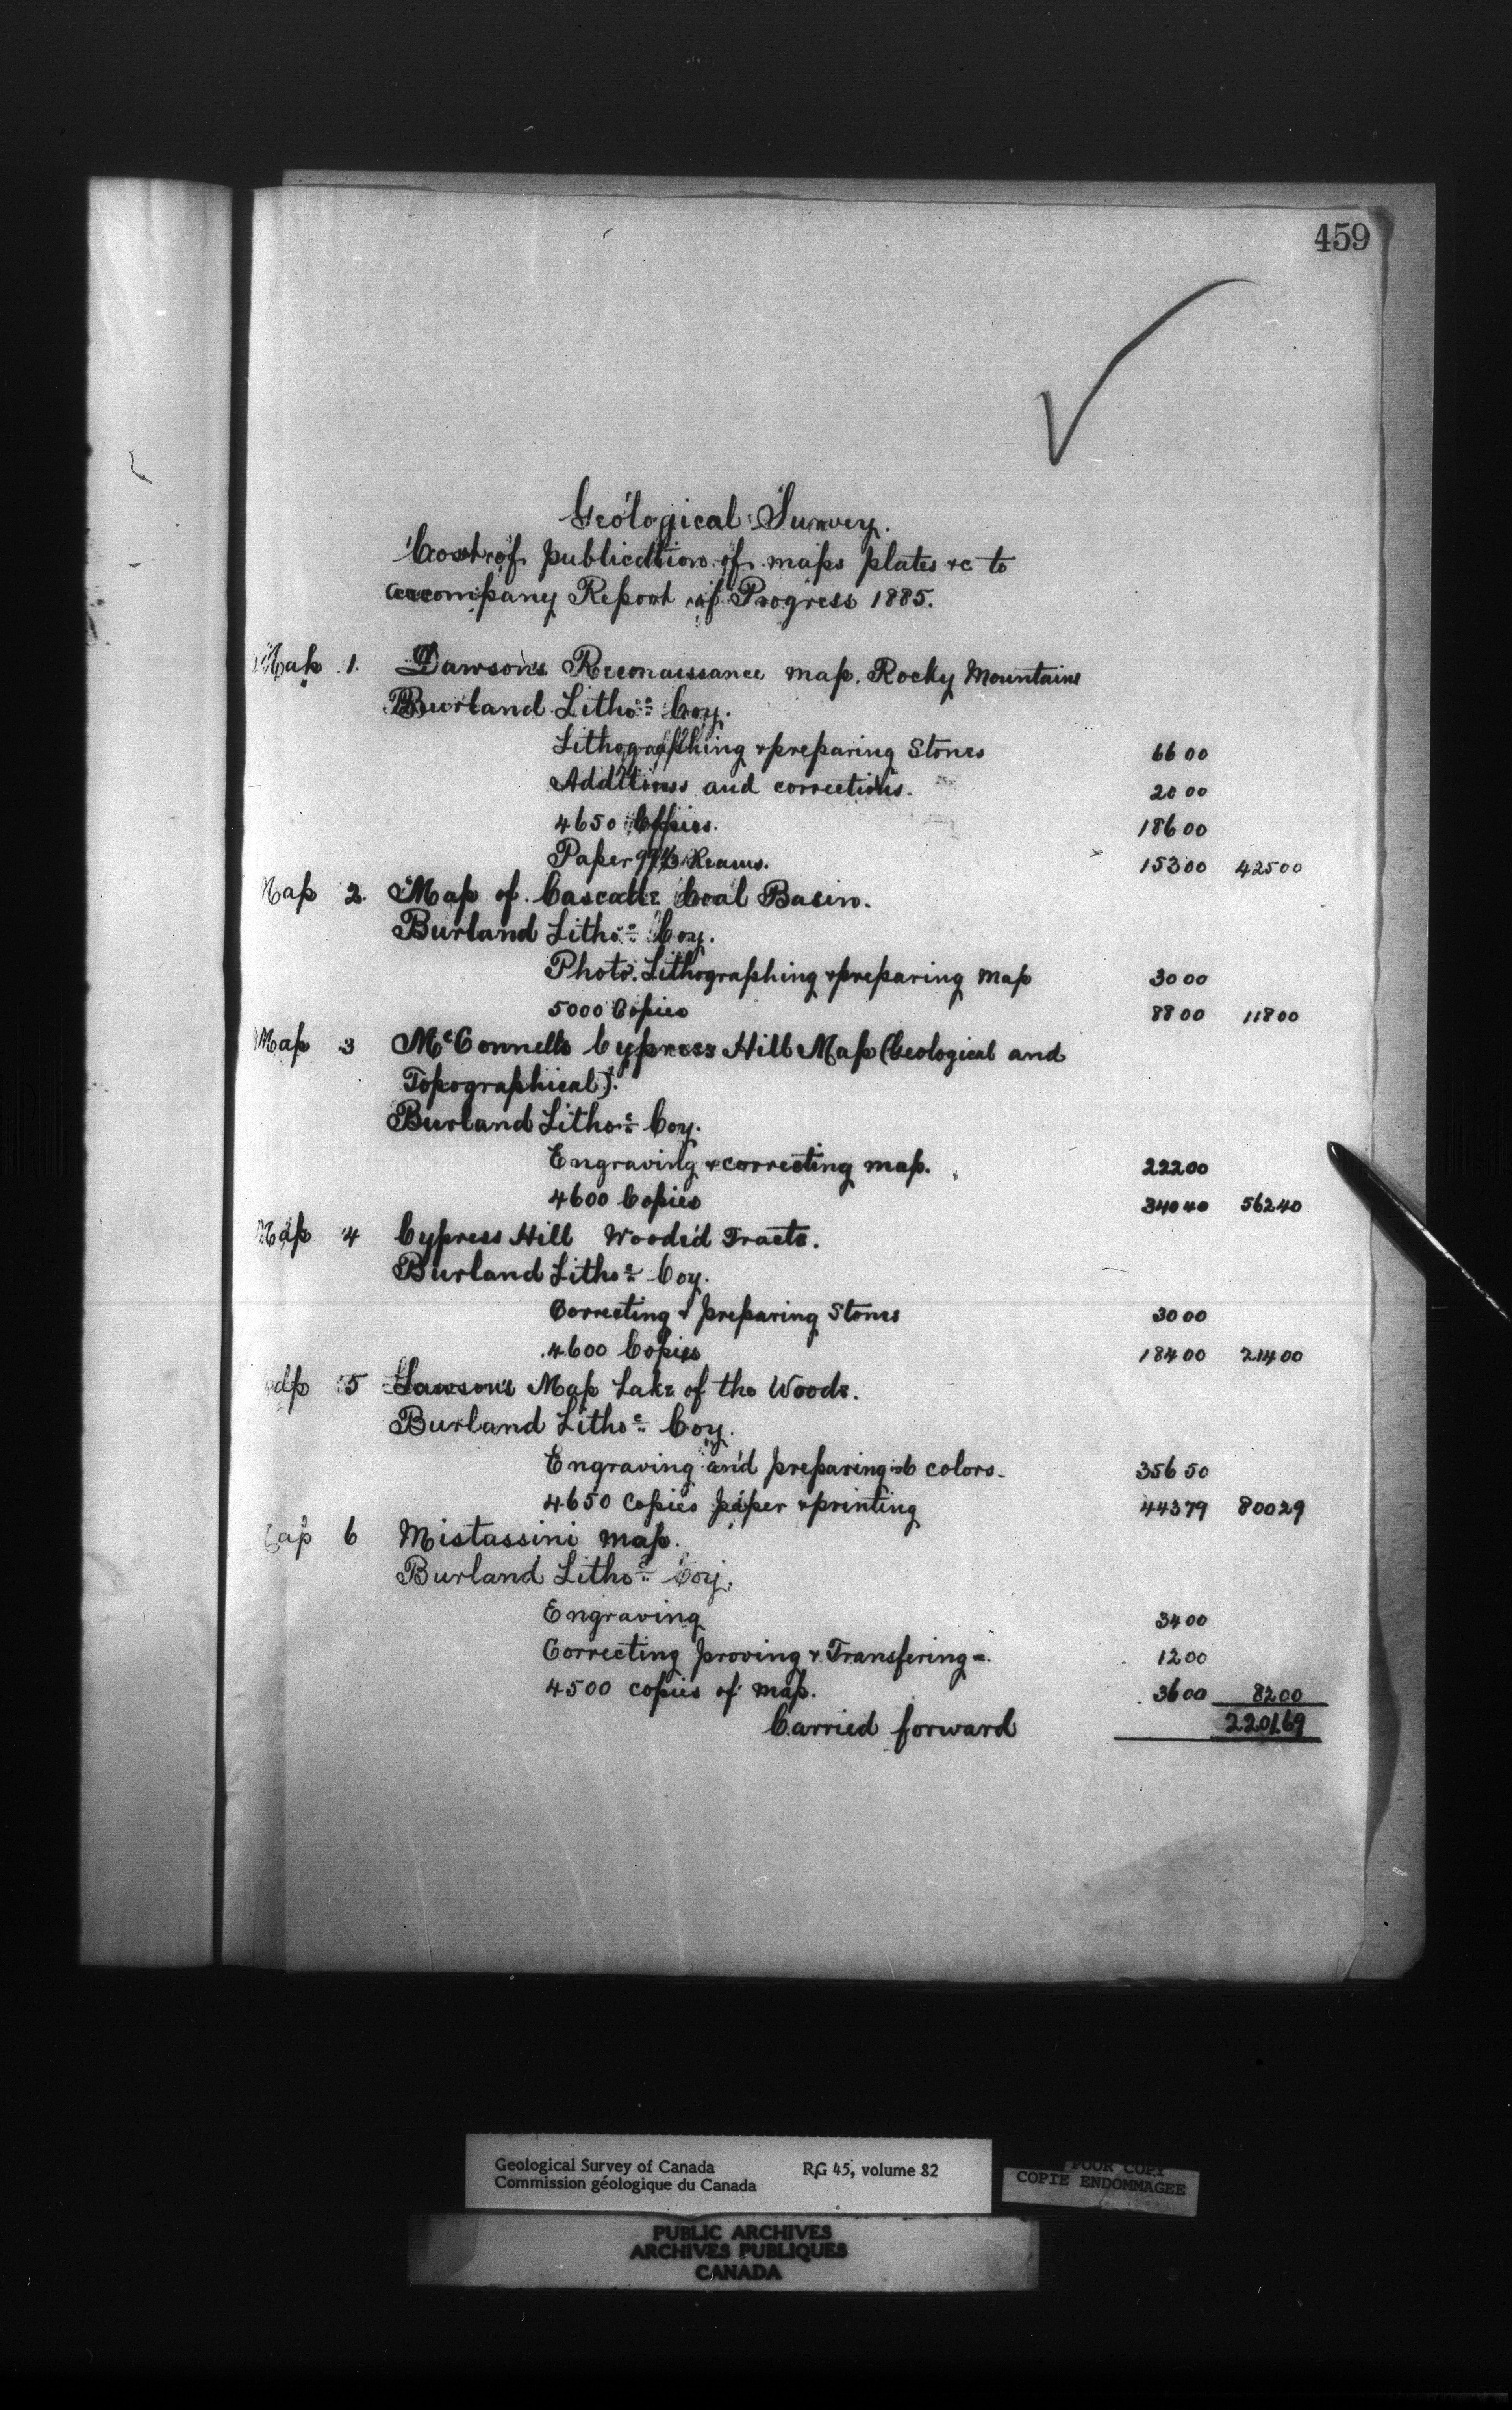 459
Geological Survey.
Cost of publication of maps plates &c to
accompany Report of Progress 1885.
Map 1. Dawson's Reconaissance map. Rocky Mountains
Burland Litho: Coy.
Lithographing & preparing Stones 66 00
Additions and corrections. 20 00
4650 Copies. 186 00
Paper Reams. 153 00 425 00
Map 2. Map of Cascade Coal Basin.
Burland Litho: Coy.
Photo. Lithographing & preparing Map 30 00
5000 Copies 88 00 118 00
Map 3 McConnells Cypress Hill Map (Geological and
Topographical).
Burland Litho: Coy.
Engraving & correcting map. 222 00
4600 Copies 340 40 562 40
Map 4 Cypress Hill Wooded Tracts.
Burland Litho: Coy.
Correcting & preparing Stones 30 00
4600 Copies 184 00 214 00
Map 5 Lawson's Map Lake of the Woods.
Burland Litho: Coy.
Engraving and preparing 6 colors. 356 50
4650 copies paper & printing 443 79 800 29
Map 6 Mistassini map.
Burland Litho: Coy.
Engraving 34 00
Correcting proving & Transfering 12 00
4500 copies of map. 36 00 82 00
Carried forward 2201.69
Geological Survey of Canada RG 45, volume 82
Commission géologique du Canada
POOR COPY
COPIE ENDOMMAGEE
PUBLIC ARCHIVES
ARCHIVES PUBLIQUES
CANADA